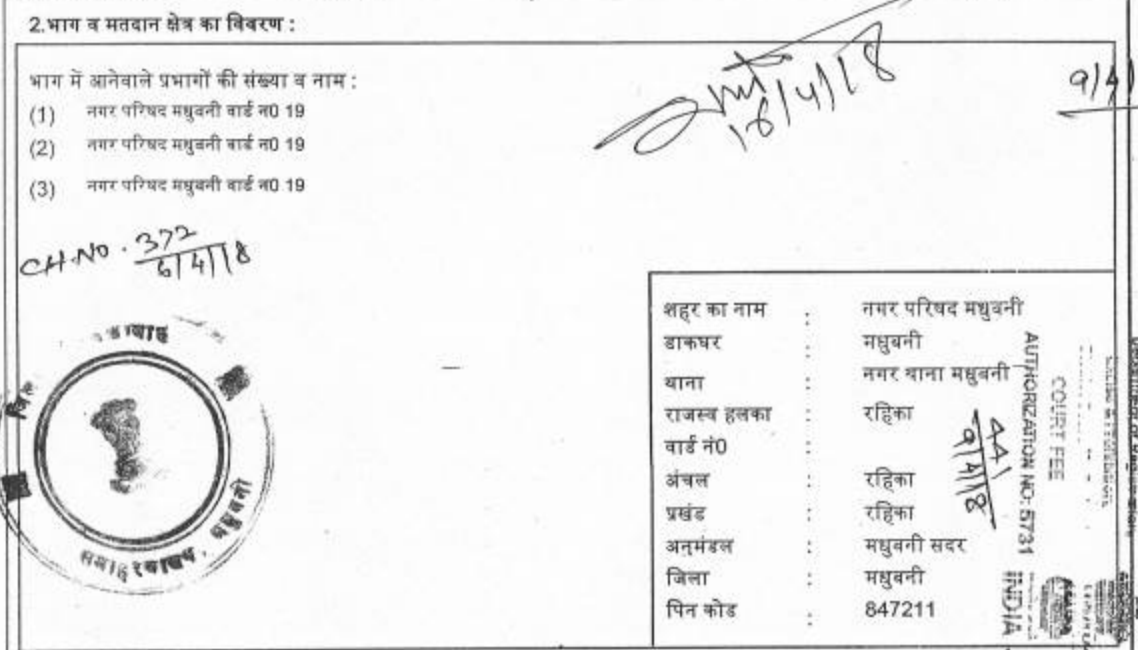 2.भाग व मतदान क्षेत्र का विवरण :
भाग में आनेवाले प्रभागों की संख्या व नाम :
(1) नगर परिषद मधुबनी वार्ड न0 19
(2) नगर परिषद मधुबनी वार्ड न0 19
(3) नगर परिषद मधुबनी वार्ड न0 19
16/4/18
9/4/
CH.NO. 372
6/4/18
समाहरणालय, मधुबनी
शहर का नाम : नगर परिषद मधुबनी
डाकघर : मधुबनी
थाना : नगर थाना मधुबनी
राजस्व हलका : रहिका
वार्ड नं0 :
अंचल : रहिका
प्रखंड : रहिका
अनुमंडल : मधुबनी सदर
जिला : मधुबनी
पिन कोड : 847211
9/4/18
AUTHORIZATION NO: 5731
COURT FEE
INDIA